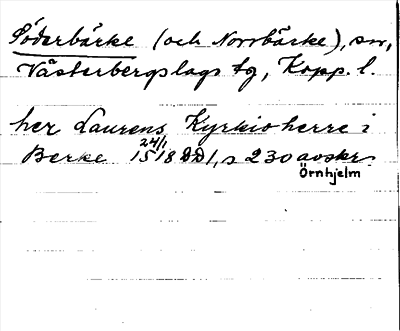 Söderbärke (och Norrbärke), sn,
Västerbergslags tg, Kopp. l.
her Laurens Kyrkioherre i
Berke 24/1 1518 DD1, s 230 avskr.
Örnhjelm